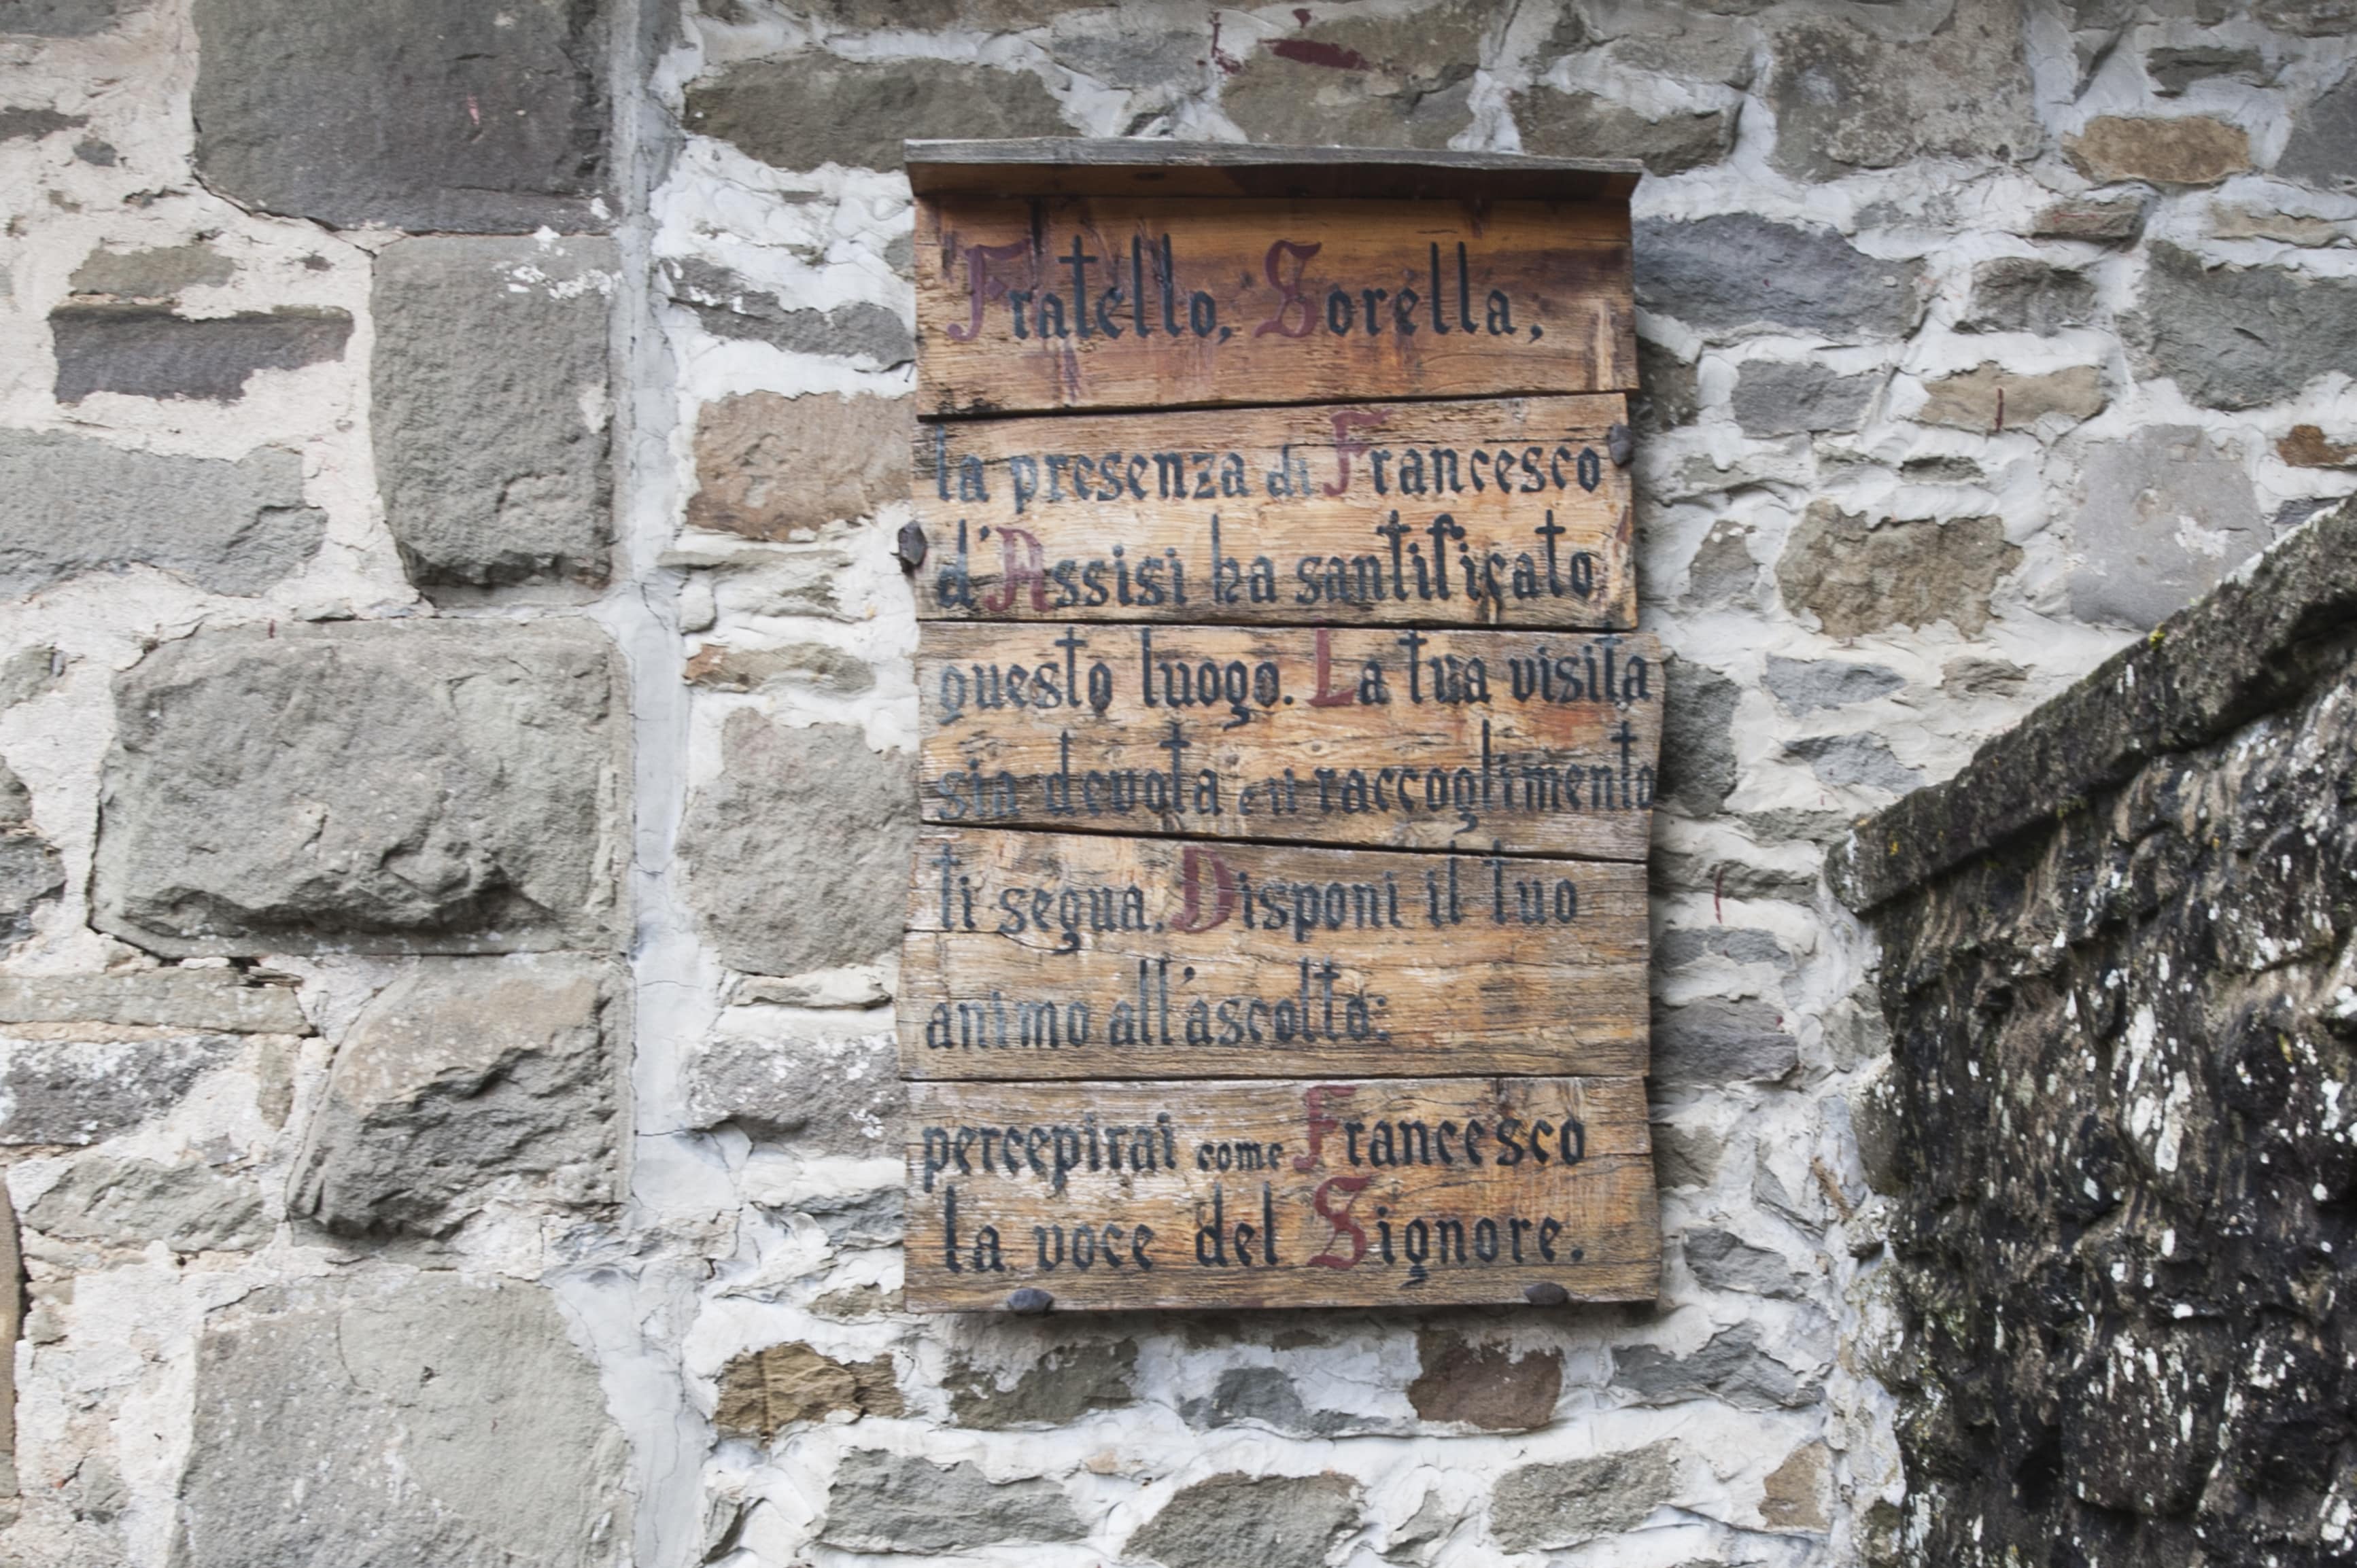 Fratello, Sorella,
la presenza di Francesco
d'Assisi ha santificato
questo luogo. La tua visita
sia devota e il raccoglimento
ti segua. Disponi il tuo
animo all'ascolto:
percepirai come Francesco
la voce del Signore.